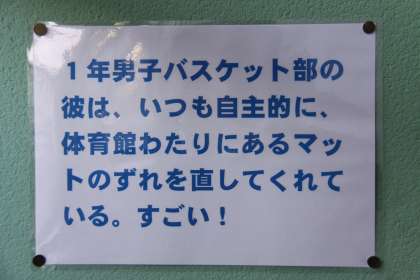 １年男子バスケット部の
彼は、いつも自主的に、
体育館わたりにあるマッ
トのずれを直してくれて
いる。すごい！